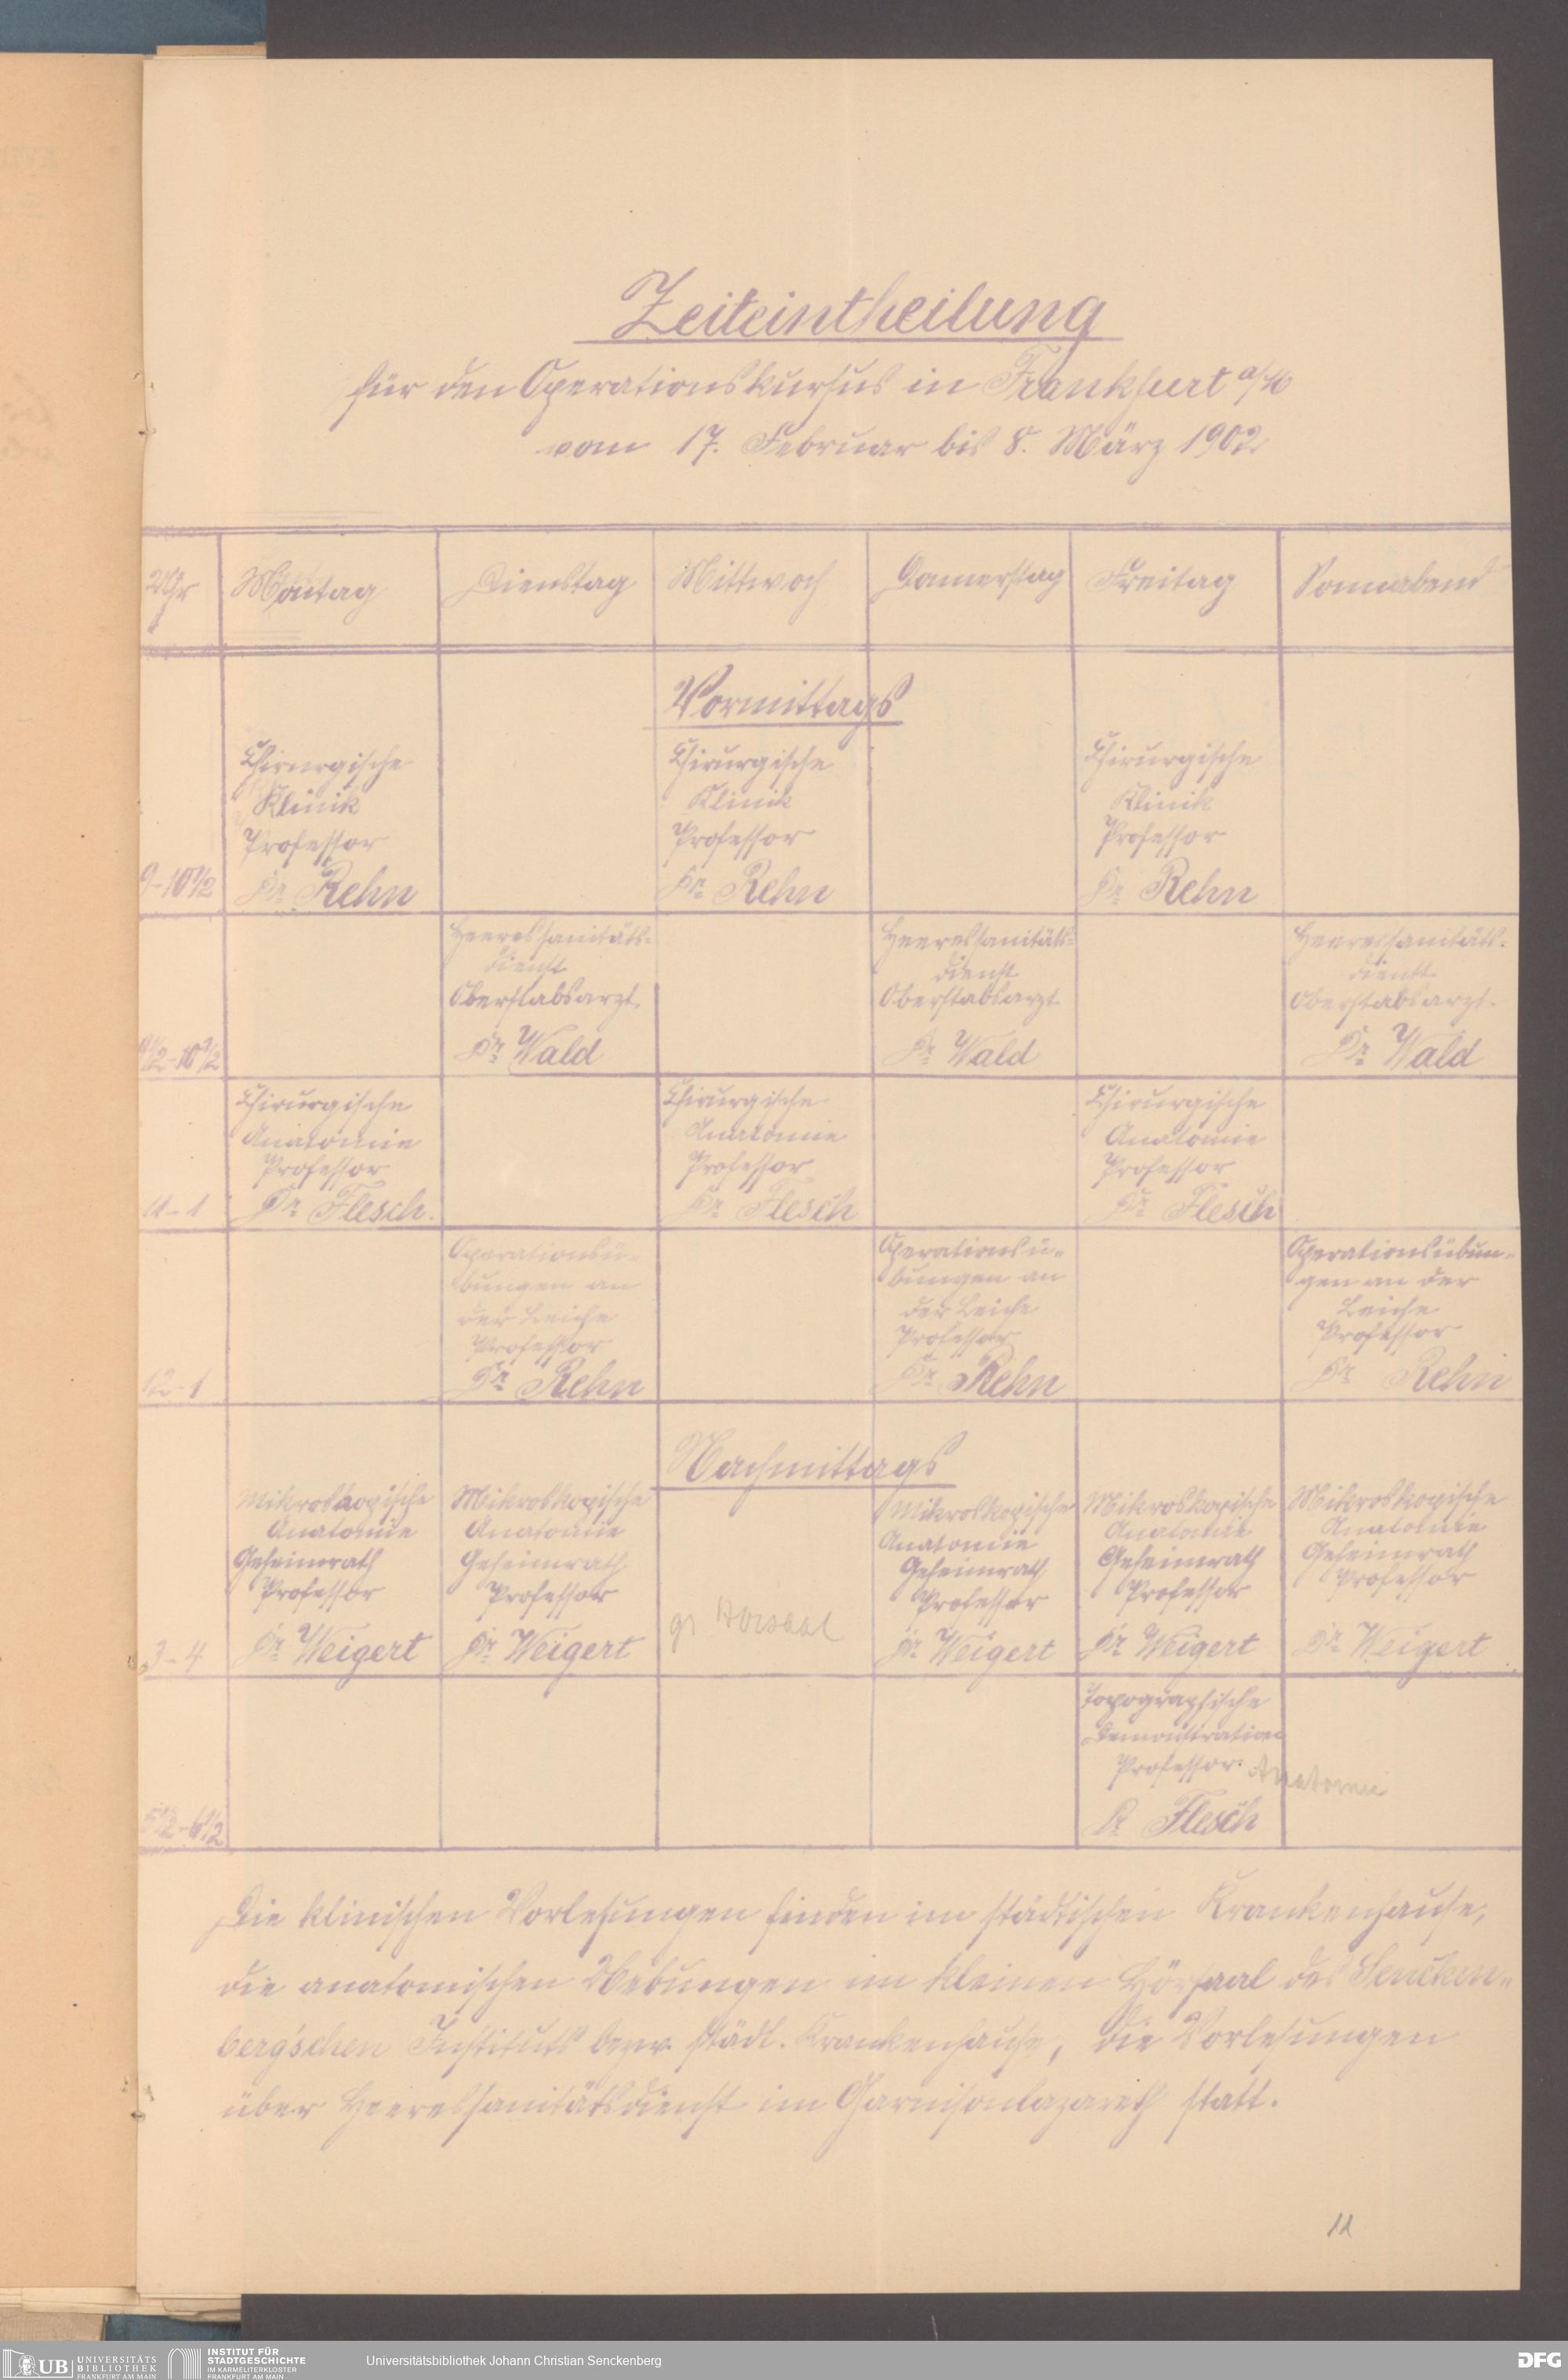 Zeiteintheilung
für den Operationskursus in Frankfurt a/M
vom 17. Februar bis 8. März 1902
Uhr Montag Dienstag Mittwoch Donnerstag Freitag Sonnabend
Vormittags
Chirurgische Chirurgische Chirurgische
Klinik Klinik Klinik
Professor Professor Professor
9-10 1/2 Dr. Rehn Dr. Rehn Dr. Rehn
Heeressanitäts- Heeressanitäts- Heeressanitäts-
dienst dienst dienst
Oberstabsarzt Oberstabsarzt Oberstabsarzt
Dr. Wald Dr. Wald Dr. Wald
Chirurgische Chirurgische Chirurgische
Anatomie Anatomie Anatomie
Professor Professor Professor
11-1 Dr. Flesch. Dr. Flesch Dr. Flesch
Operationsü- Operationsü- Operationsübun-
bungen an bungen an gen an der
der Leiche der Leiche Leiche
Professor Professor Professor
12-1 Dr. Rehn Dr. Rehn Dr. Rehn
Nachmittags
Mikroskopische Mikroskopische Mikroskopische Mikroskopische Mikroskopische
Anatomie Anatomie Anatomie Anatomie Anatomie
Geheimrath Geheimrath Geheimrath Geheimrath Geheimrath
Professor Professor Professor Professor Professor
3-4 Dr. Weigert Dr. Weigert gr Hörsaal Dr. Weigert Dr. Weigert Dr. Weigert
Topographische
Demonstration
Professor Anatomie
5 1/2-6 1/2 Dr. Flesch
Die klinischen Vorlesungen finden im städtischen Krankenhause,
die anatomischen Uebungen im kleinen Hörsaal des Sencken-
berg'schen Instituts bezw. städt. Krankenhause, die Vorlesungen
über Heeressanitätsdienst im Garnisonlazareth statt.
11
UB UNIVERSITÄTS
BIBLIOTHEK
FRANKFURT AM MAIN
INSTITUT FÜR
STADTGESCHICHTE
IM KARMELITERKLOSTER
FRANKFURT AM MAIN
Universitätsbibliothek Johann Christian Senckenberg
DFG